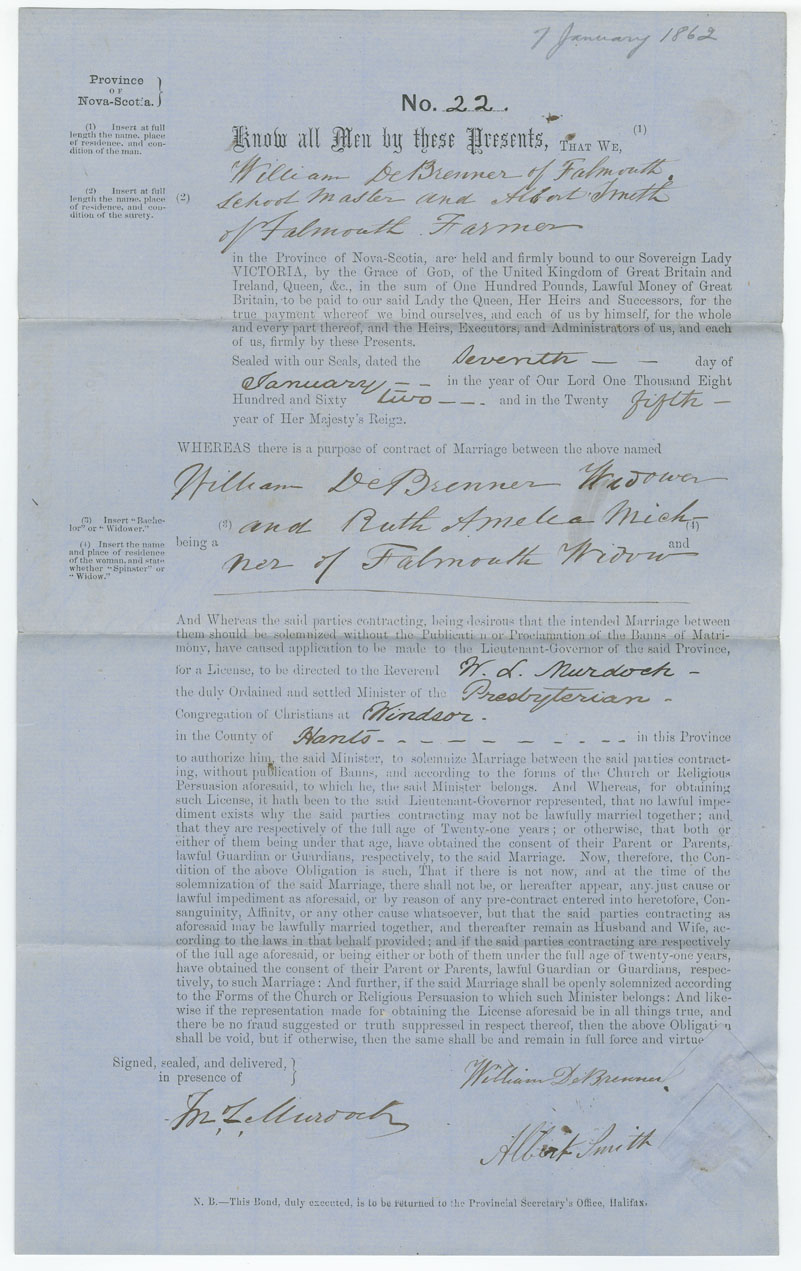 7 January 1862
Province
OF
Nova-Scotia.
No. 22.
(1) Insert at full
length the name, place
of residence, and con-
dition of the man.
Know all Men by these Presents, THAT WE, (1)
William DeBrenner of Falmouth
(2) Insert at full
length the name, place
of residence, and con-
dition of the surety.
(2) School Master and Albert Smith
of Falmouth Farmer
in the Province of Nova-Scotia, are held and firmly bound to our Sovereign Lady
VICTORIA, by the Grace of GOD, of the United Kingdom of Great Britain and
Ireland, Queen, &c., in the sum of One Hundred Pounds, Lawful Money of Great
Britain, to be paid to our said Lady the Queen, Her Heirs and Successors, for the
true payment whereof we bind ourselves, and each of us by himself, for the whole
and every part thereof, and the Heirs, Executors, and Administrators of us, and each
of us, firmly by these Presents.
Sealed with our Seals, dated the Seventh — — day of
January — — in the year of Our Lord One Thousand Eight
Hundred and Sixty two — — . and in the Twenty fifth —
year of Her Majesty's Reign.
WHEREAS there is a purpose of contract of Marriage between the above named
William DeBrenner Widower
(3) Insert "Bache-
lor" or "Widower."
(3) and Ruth Amelia Mich- (4)
(4) Insert the name
and place of residence
of the woman, and state
whether "Spinster" or
"Widow."
being a and
ner of Falmouth Widow
And Whereas the said parties contracting, being desirous that the intended Marriage between
them should be solemnized without the Publicati n or Proclamation of the Banns of Matri-
mony, have caused application to be made to the Lieutenant-Governor of the said Province,
for a License, to be directed to the Reverend W. L. Murdoch —
the duly Ordained and settled Minister of the Presbyterian -
Congregation of Christians at Windsor -
in the County of Hants - - - - - - - - - - in this Province
to authorize him, the said Minister, to solemnize Marriage between the said parties contract-
ing, without publication of Banns, and according to the forms of the Church or Religious
Persuasion aforesaid, to which he, the said Minister belongs. And Whereas, for obtaining
such License, it hath been to the said Lieutenant-Governor represented, that no lawful impe-
diment exists why the said parties contracting may not be lawfully married together; and
that they are respectively of the full age of Twenty-one years; or otherwise, that both or
either of them being under that age, have obtained the consent of their Parent or Parents,
lawful Guardian or Guardians, respectively, to the said Marriage. Now, therefore, the Con-
dition of the above Obligation is such, That if there is not now, and at the time of the
solemnization of the said Marriage, there shall not be, or hereafter appear, any just cause or
lawful impediment as aforesaid, or by reason of any pre-contract entered into heretofore, Con-
sanguinity, Affinity, or any other cause whatsoever, but that the said parties contracting as
aforesaid may be lawfully married together, and thereafter remain as Husband and Wife, ac-
cording to the laws in that behalf provided; and if the said parties contracting are respectively
of the full age aforesaid, or being either or both of them under the full age of twenty-one years,
have obtained the consent of their Parent or Parents, lawful Guardian or Guardians, respec-
tively, to such Marriage: And further, if the said Marriage shall be openly solemnized according
to the Forms of the Church or Religious Persuasion to which such Minister belongs: And like-
wise if the representation made for obtaining the License aforesaid be in all things true, and
there be no fraud suggested or truth suppressed in respect thereof, then the above Obligation
shall be void, but if otherwise, then the same shall be and remain in full force and virtue
Signed, sealed, and delivered,
in presence of
William DeBrenner.
Murdoch
Albert Smith
N. B.—This Bond, duly executed, is to be returned to the Provincial Secretary's Office, Halifax.